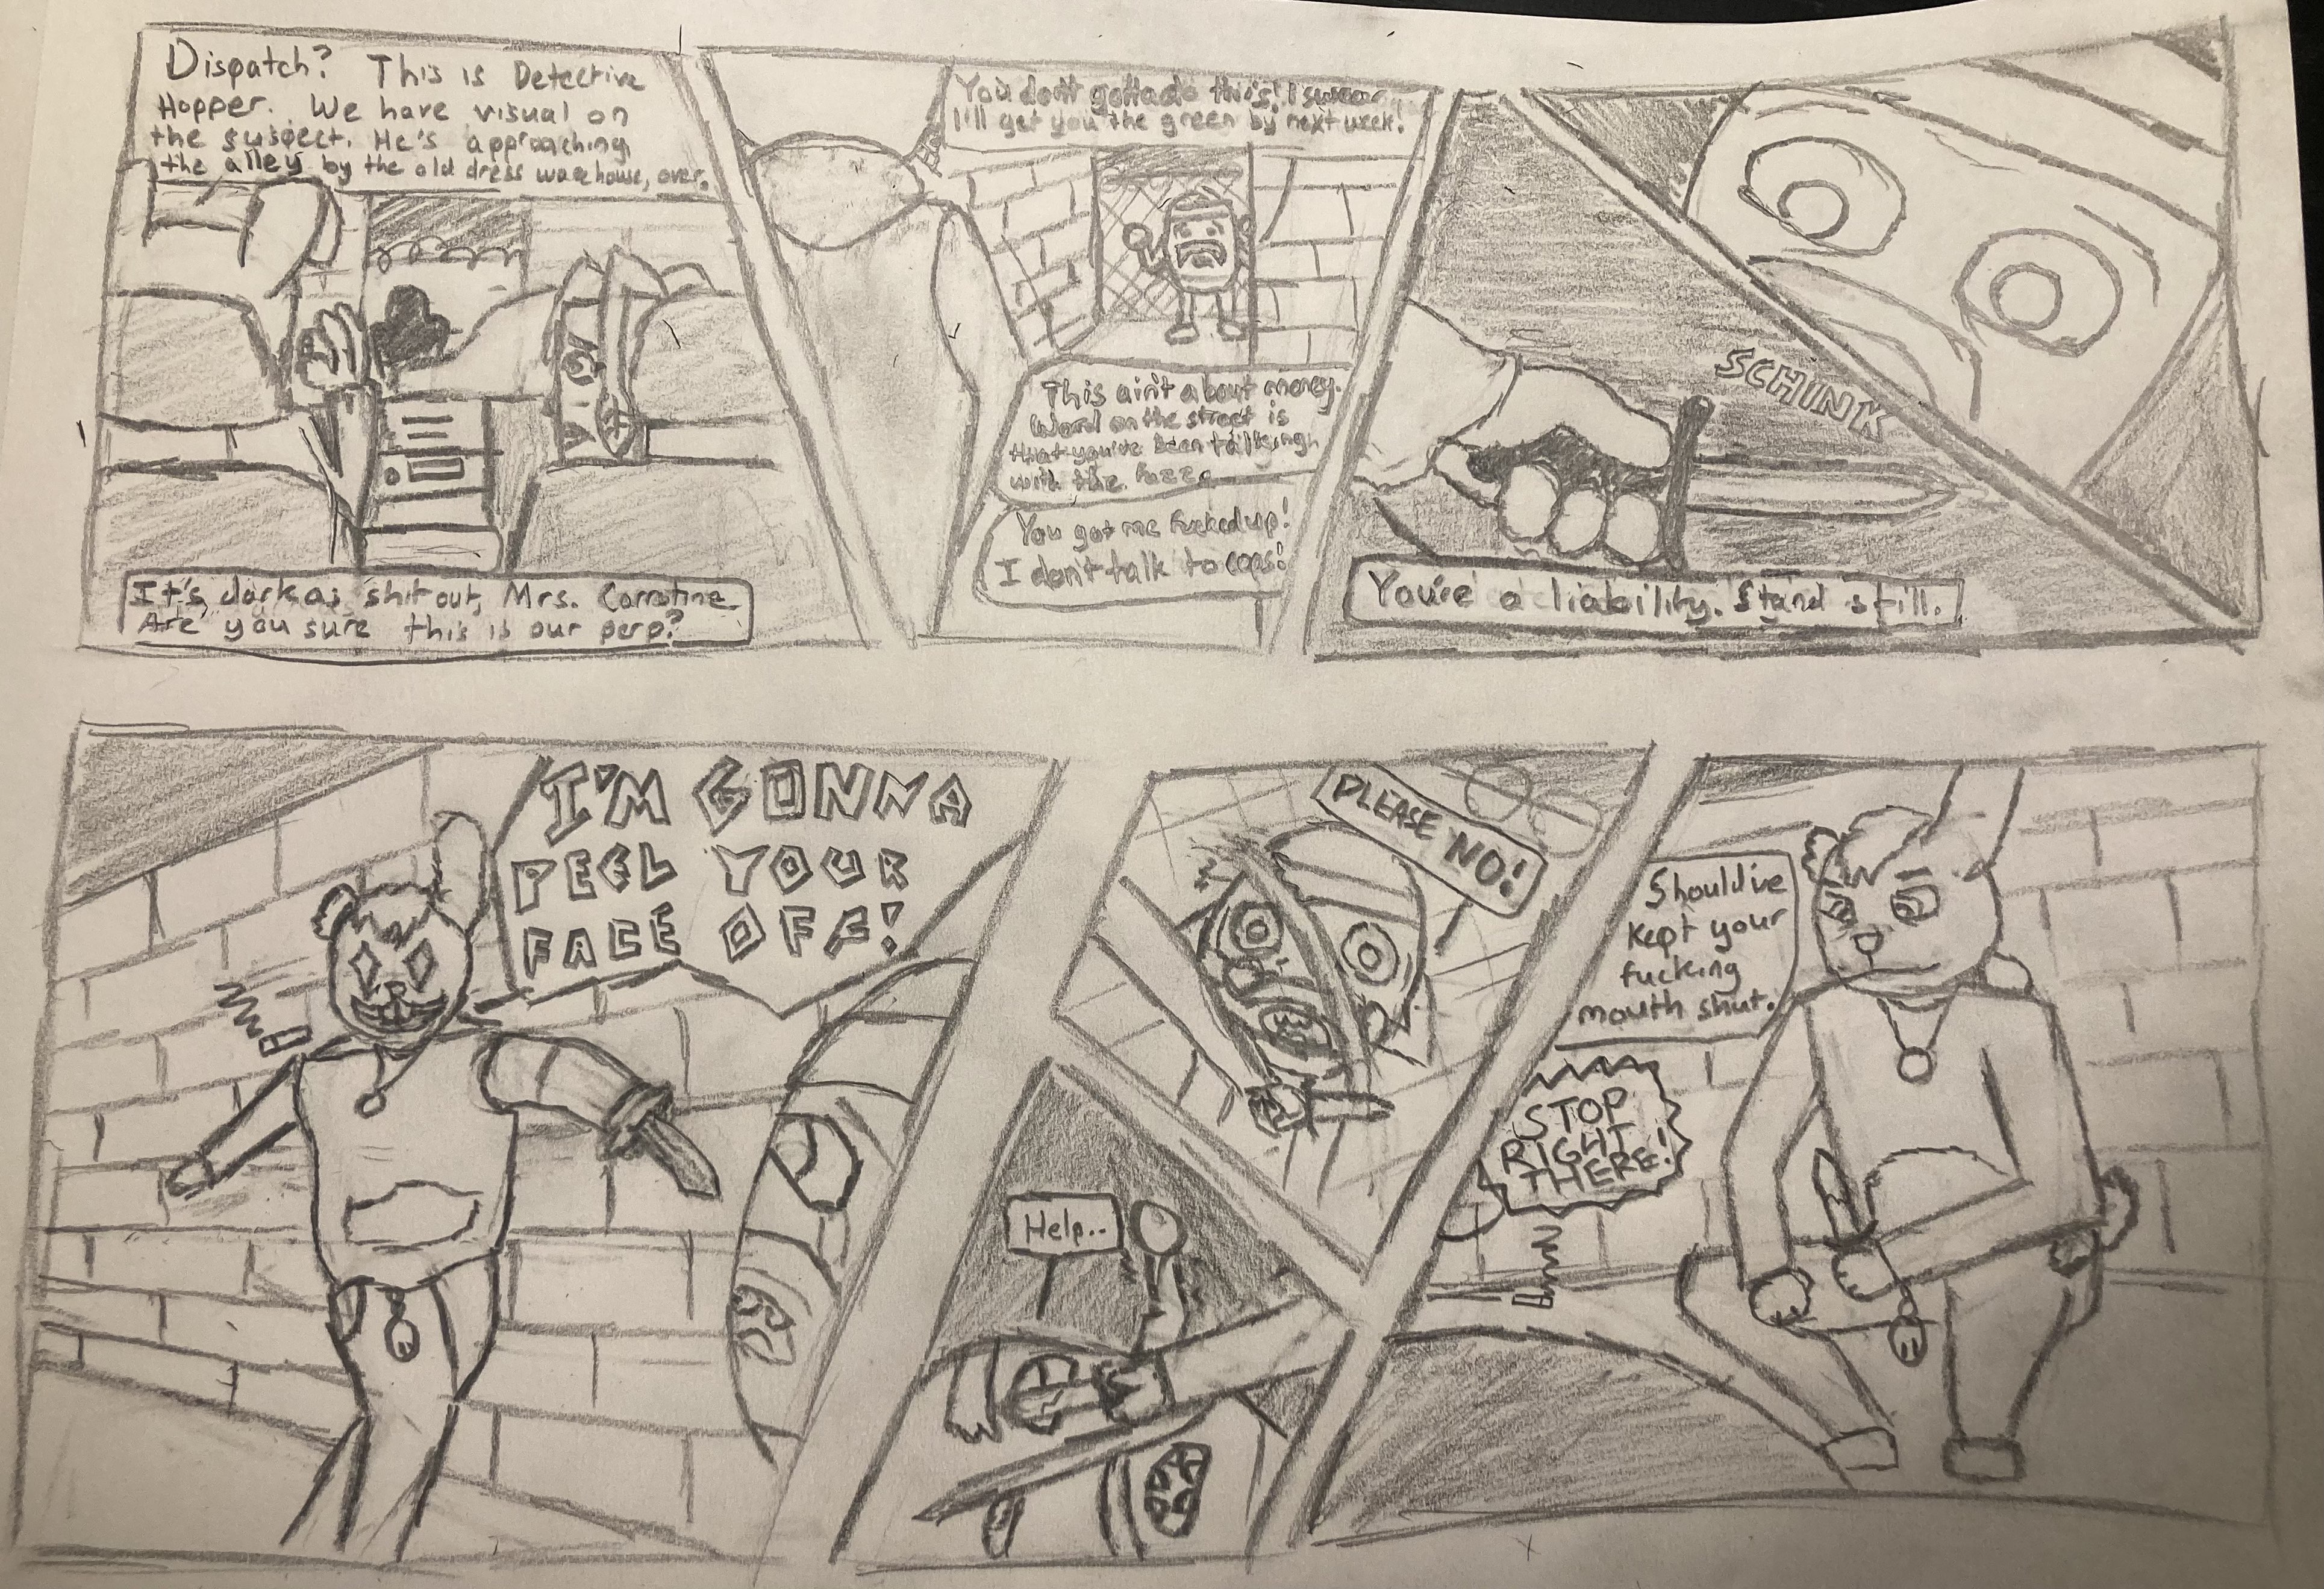 Dispatch? This is Detective
Hopper. We have visual on
the suspect. He's approaching
the alley by the old dress warehouse, over.
It's dark as shit out, Mrs. Carrotine.
Are you sure this is our perp?
You don't gotta do this! I swear
I'll get you the green by next week!
This ain't about money.
Word on the street is
that you've been talking
with the fuzz.
You got me fucked up!
I don't talk to cops!
SCHINK
You're a liability. Stand still.
I'M GONNA
PEEL YOUR
FACE OFF!
PLEASE NO!
Help..
Should've
kept your
fucking
mouth shut.
STOP
RIGHT
THERE!